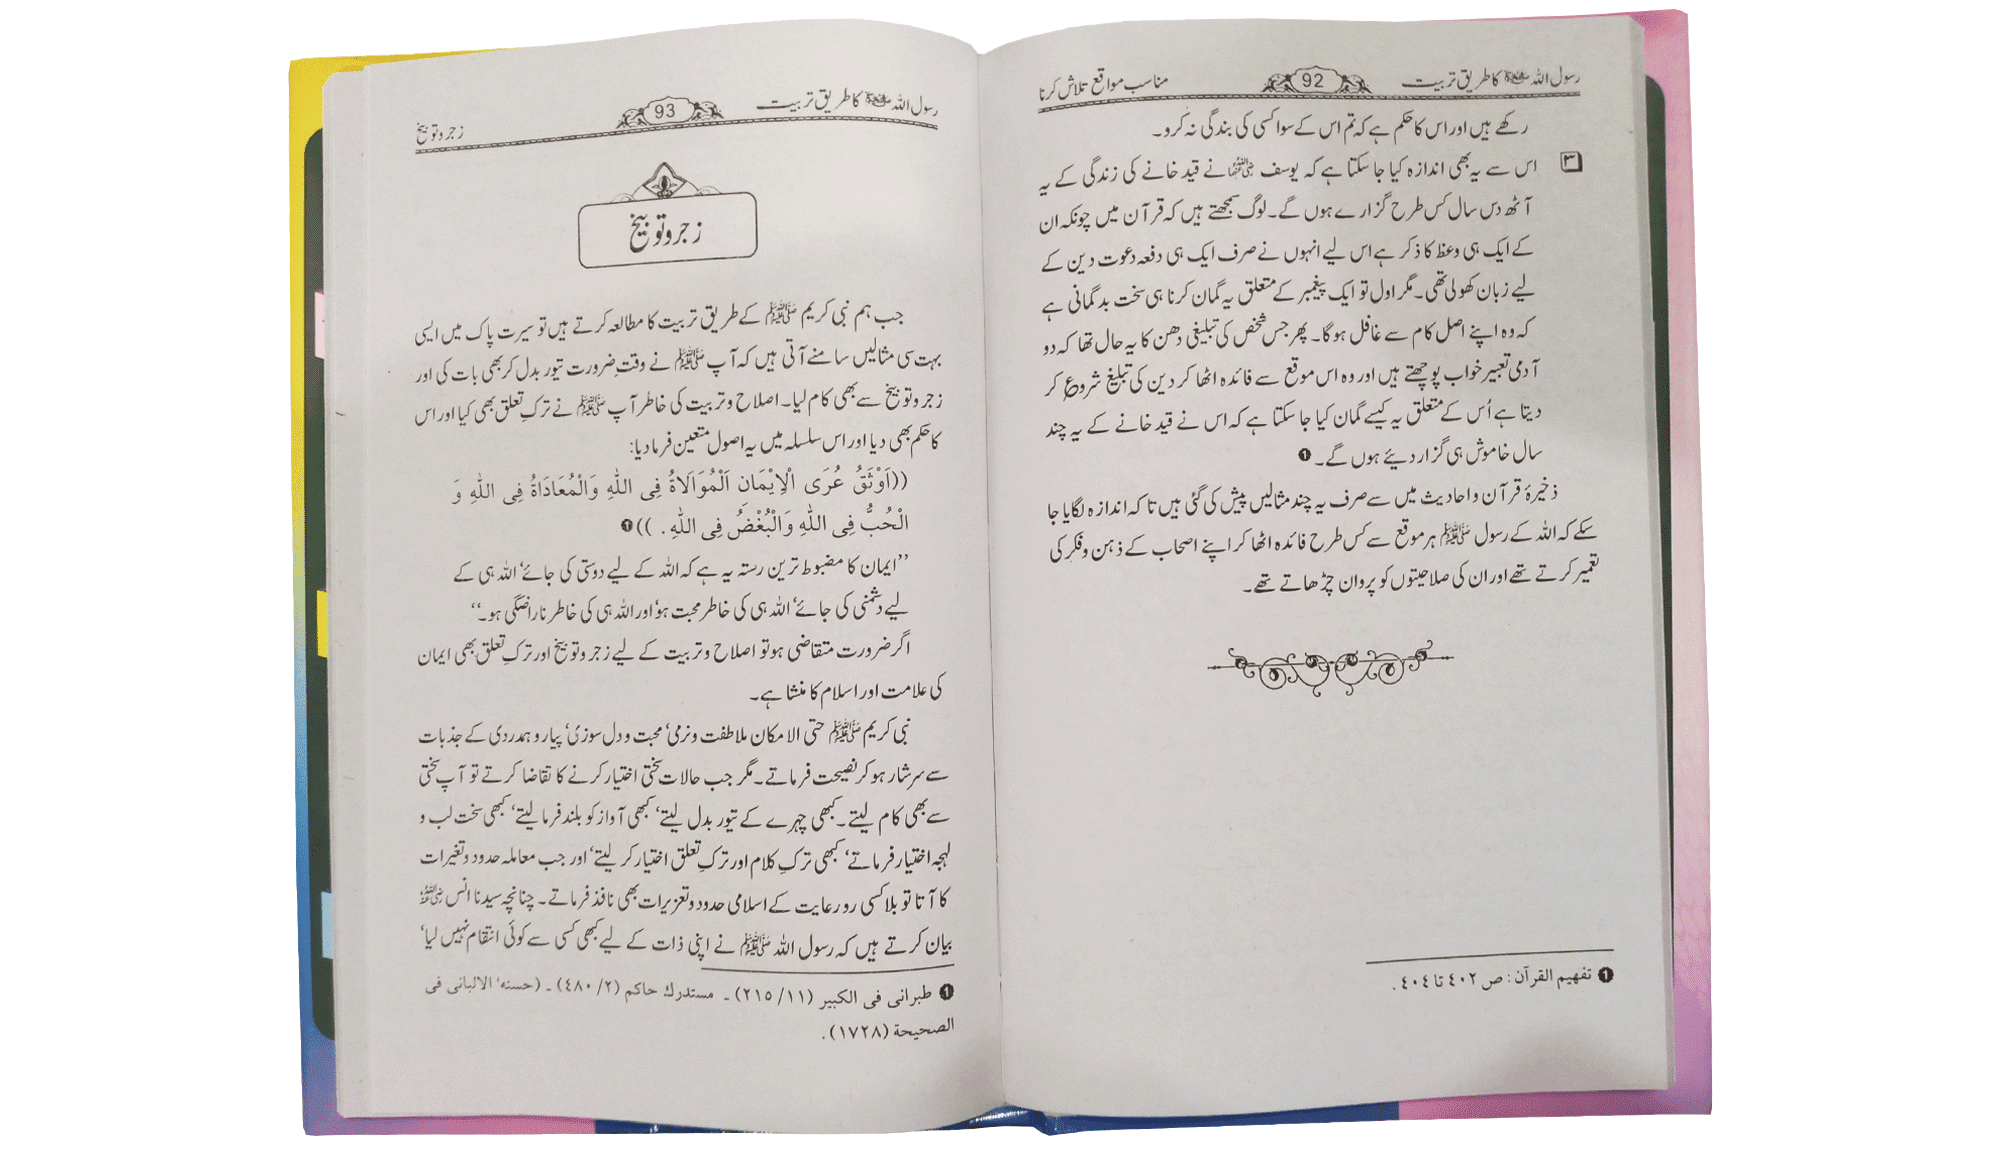 رسول اللہ ﷺ کا طریق تربیت 92 مناسب مواقع تلاش کرنا
رکھے ہیں اور اس کا حکم ہے کہ تم اس کے سوا کسی کی بندگی نہ کرو۔
۳ اس سے یہ بھی اندازہ کیا جا سکتا ہے کہ یوسف نے قید خانے کی زندگی کے یہ
آٹھ دس سال کس طرح گزارے ہوں گے۔ لوگ سمجھتے ہیں کہ قرآن میں چونکہ ان
کے ایک ہی وعظ کا ذکر ہے اس لیے انہوں نے صرف ایک ہی دفعہ دعوت دین کے
لیے زبان کھولی تھی۔ مگر اول تو ایک پیغمبر کے متعلق یہ گمان کرنا ہی سخت بدگمانی ہے
کہ وہ اپنے اصل کام سے غافل ہوگا۔ پھر جس شخص کی تبلیغی دھن کا یہ حال تھا کہ دو
آدمی تعبیر خواب پوچھتے ہیں اور وہ اس موقع سے فائدہ اٹھا کر دین کی تبلیغ شروع کر
دیتا ہے اُس کے متعلق یہ کیسے گمان کیا جا سکتا ہے کہ اس نے قید خانے کے یہ چند
سال خاموش ہی گزار دیئے ہوں گے۔ ❶
ذخیرۂ قرآن و احادیث میں سے صرف یہ چند مثالیں پیش کی گئی ہیں تا کہ اندازہ لگایا جا
سکے کہ اللہ کے رسول ﷺ ہر موقع سے کس طرح فائدہ اٹھا کر اپنے اصحاب کے ذہن و فکر کی
تعمیر کرتے تھے اور ان کی صلاحیتوں کو پروان چڑھاتے تھے۔
❶ تفهیم القرآن : ص ٤٠٢ تا ٤٠٤ .
رسول اللہ ﷺ کا طریق تربیت 93 زجر و توبیخ
زجر و توبیخ
جب ہم نبی کریم ﷺ کے طریق تربیت کا مطالعہ کرتے ہیں تو سیرت پاک میں ایسی
بہت سی مثالیں سامنے آتی ہیں کہ آپ ﷺ نے وقتِ ضرورت تیور بدل کر بھی بات کی اور
زجر و توبیخ سے بھی کام لیا۔ اصلاح و تربیت کی خاطر آپ ﷺ نے ترکِ تعلق بھی کیا اور اس
کا حکم بھی دیا اور اس سلسلہ میں یہ اصول متعین فرما دیا:
((اَوْثَقُ عُرَى الْاِيْمَانِ اَلْمُوَالَاةُ فِى اللّٰهِ وَالْمُعَادَاةُ فِى اللّٰهِ وَ
الْحُبُّ فِى اللّٰهِ وَالْبُغْضُ فِى اللّٰهِ . )) ❶
”ایمان کا مضبوط ترین رستہ یہ ہے کہ اللہ کے لیے دوستی کی جائے‘ اللہ ہی کے
لیے دشمنی کی جائے‘ اللہ ہی کی خاطر محبت ہو‘ اور اللہ ہی کی خاطر ناراضگی ہو۔“
اگر ضرورت متقاضی ہو تو اصلاح و تربیت کے لیے زجر و توبیخ اور ترکِ تعلق بھی ایمان
کی علامت اور اسلام کا منشا ہے۔
نبی کریم ﷺ حتی الامکان ملاطفت و نرمی‘ محبت و دل سوزی‘ پیار و ہمدردی کے جذبات
سے سرشار ہو کر نصیحت فرماتے۔ مگر جب حالات سختی اختیار کرنے کا تقاضا کرتے تو آپ سختی
سے بھی کام لیتے۔ کبھی چہرے کے تیور بدل لیتے‘ کبھی آواز کو بلند فرما لیتے‘ کبھی سخت لب و
لہجہ اختیار فرماتے‘ کبھی ترکِ کلام اور ترکِ تعلق اختیار کر لیتے‘ اور جب معاملہ حدود و تغیرات
کا آتا تو بلا کسی رو رعایت کے اسلامی حدود و تعزیرات بھی نافذ فرماتے۔ چنانچہ سیدنا انس رضی اللہ عنہ
بیان کرتے ہیں کہ رسول اللہ ﷺ نے اپنی ذات کے لیے کبھی کسی سے کوئی انتقام نہیں لیا‘
❶ طبرانی فی الکبیر (١١/ ٢١٥) ۔ مستدرك حاکم (٢/ ٤٨٠) ۔ (حسنه' الالبانی فی
الصحیحة (١٧٢٨) .